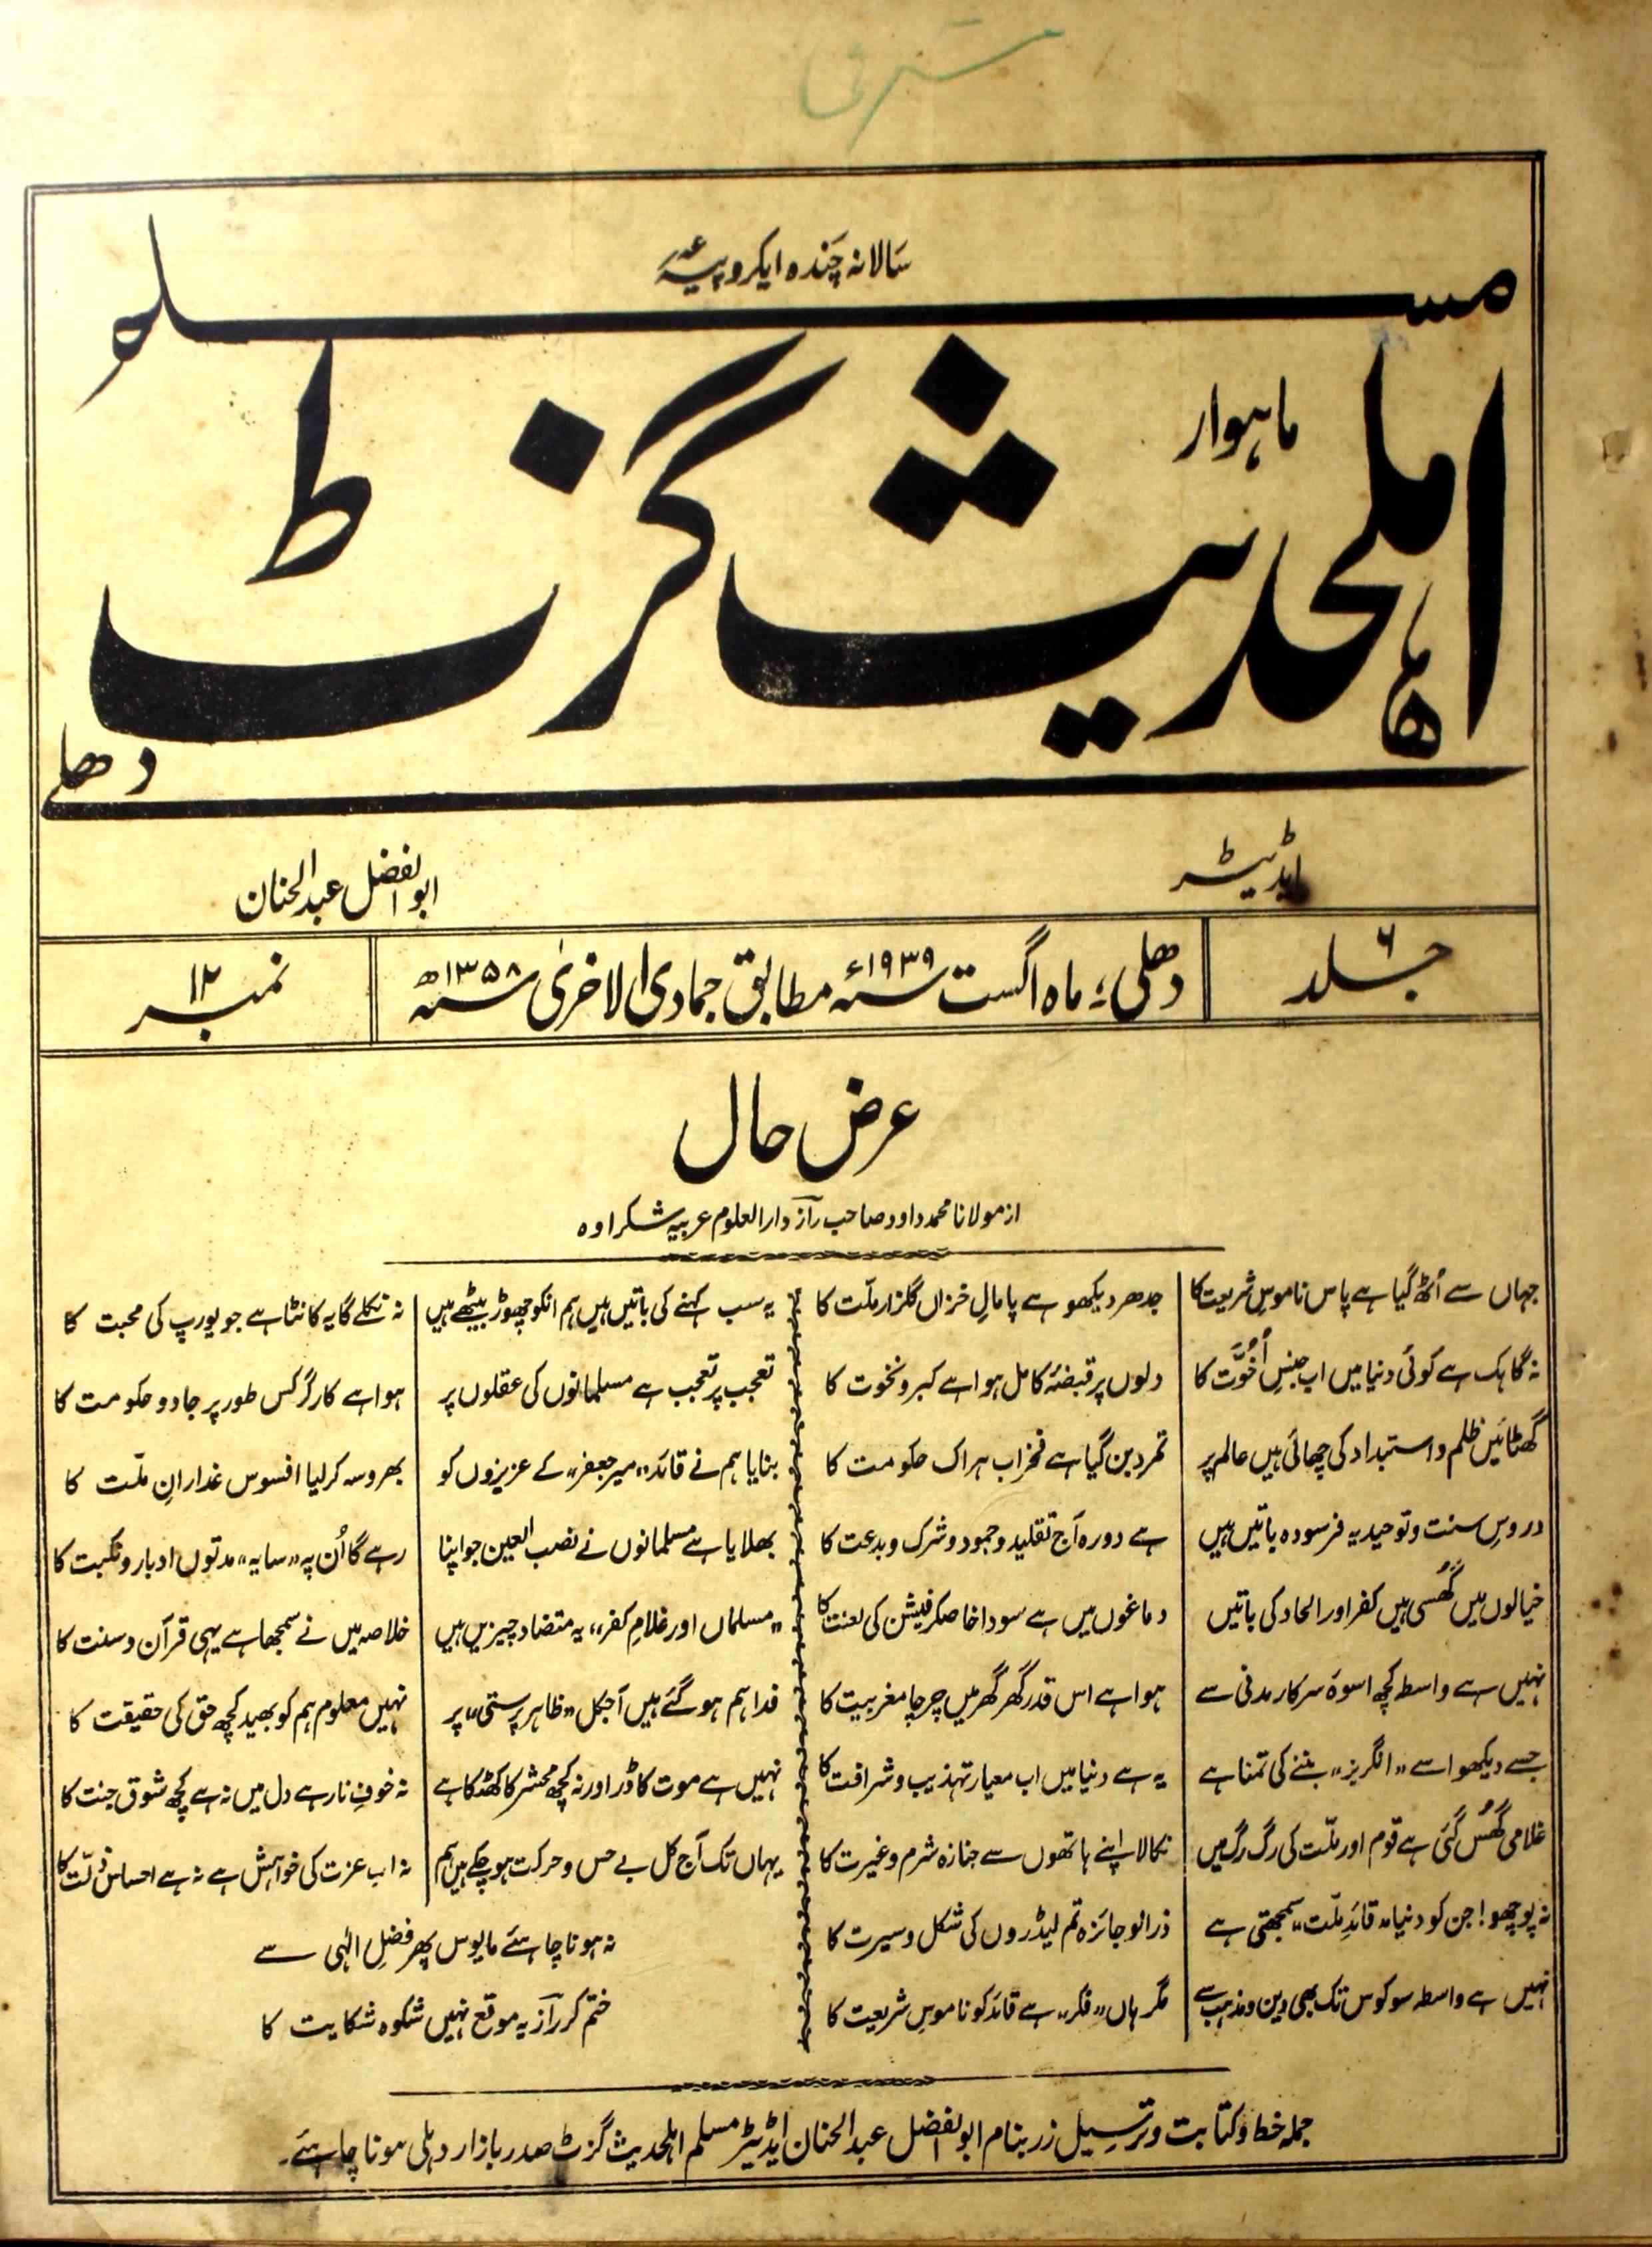 سالانہ چندہ ایکروپیہ
مسلم
ماہوار
اہلحدیث گزٹ
دھلی
ایڈیٹر
ابوالفضل عبدالحنان
جلد ۶
دھلی؛ ماہ اگست سنہ ۱۹۳۹ء مطابق جمادی الاخریٰ سنہ ۱۳۵۸ھ
نمبر ۱۲
عرض حال
از مولانا محمد داود صاحب رازؔ دارالعلوم عربیہ شکراوہ
جہاں سے اُٹھ گیا ہے پاس ناموسِ شریعت کا جدھر دیکھو ہے پامالِ خزاں گلزار ملّت کا
نہ گاہک ہے کوئی دنیا میں اب جنسِ اُخُوَّت کا دلوں پر قبضۂ کامل ہوا ہے کبر و نخوت کا
گھٹائیں ظلم و استبداد کی چھائی ہیں عالم پر تمرد بن گیا ہے فخر اب ہراک حکومت کا
دروسِ سنت و توحید یہ فرسودہ باتیں ہیں ہے دورہ آج تقلید و جمود و شرک و بدعت کا
خیالوں میں گھُسی ہیں کفر اور الحاد کی باتیں دماغوں میں ہے سودا خاصکر فیشن کی لعنت کا
نہیں ہے واسطہ کچھ اسوۂ سرکار مدنی سے ہوا ہے اس قدر گھر گھر میں چرچا مغربیت کا
جسے دیکھو اسے "انگریز" بننے کی تمنا ہے یہ ہے دنیا میں اب معیار تہذیب و شرافت کا
غلامی گھُس گئی ہے قوم اور ملّت کی رگ رگ میں نکالا اپنے ہاتھوں سے جنازہ شرم و غیرت کا
نہ پوچھو! جن کو دنیا "قائدِ ملّت" سمجھتی ہے ذرا لو جائزہ تم لیڈروں کی شکل و سیرت کا
نہیں ہے واسطہ سو کوس تک بھی دین و مذہب سے مگر ہاں "فکر" ہے قائد کو ناموسِ شریعت کا
یہ سب کہنے کی باتیں ہیں ہم انکو چھوڑ بیٹھے ہیں نہ نکلے گا یہ کانٹا ہے جو یورپ کی محبت کا
تعجب پر تعجب ہے مسلمانوں کی عقلوں پر ہوا ہے کارگر کس طور پر جادو حکومت کا
بنایا ہم نے قائد "میر جعفر" کے عزیزوں کو بھروسہ کرلیا افسوس غدارانِ ملّت کا
بھلایا ہے مسلمانوں نے نصب العین جو اپنا رہے گا اُن پہ "سایہ" مدتوں ادبار و نکبت کا
"مسلماں اور غلامِ کفر" یہ متضاد چیزیں ہیں خلاصہ میں نے سمجھا ہے یہی قرآن و سنت کا
فدا ہم ہو گئے ہیں آجکل "ظاہر پرستی" پر نہیں معلوم ہم کو بھید کچھ حق کی حقیقت کا
نہیں ہے موت کا ڈر اور نہ کچھ محشر کا کھٹکا ہے نہ خوفِ نار ہے دل میں نہ ہے کچھ شوق جنت کا
یہاں تک آج کل بے حس و حرکت ہو چکے ہیں ہم نہ اب عزت کی خواہش ہے نہ ہے احساس ذلّت کا
نہ ہونا چاہئے مایوس پھر فضلِ الٰہی سے
ختم کر رازؔ یہ موقع نہیں شکوہ شکایت کا
جملہ خط و کتابت و ترسیل زر بنام ابوالفضل عبدالحنان ایڈیٹر مسلم اہلحدیث گزٹ صدر بازار دہلی ہونا چاہئے۔